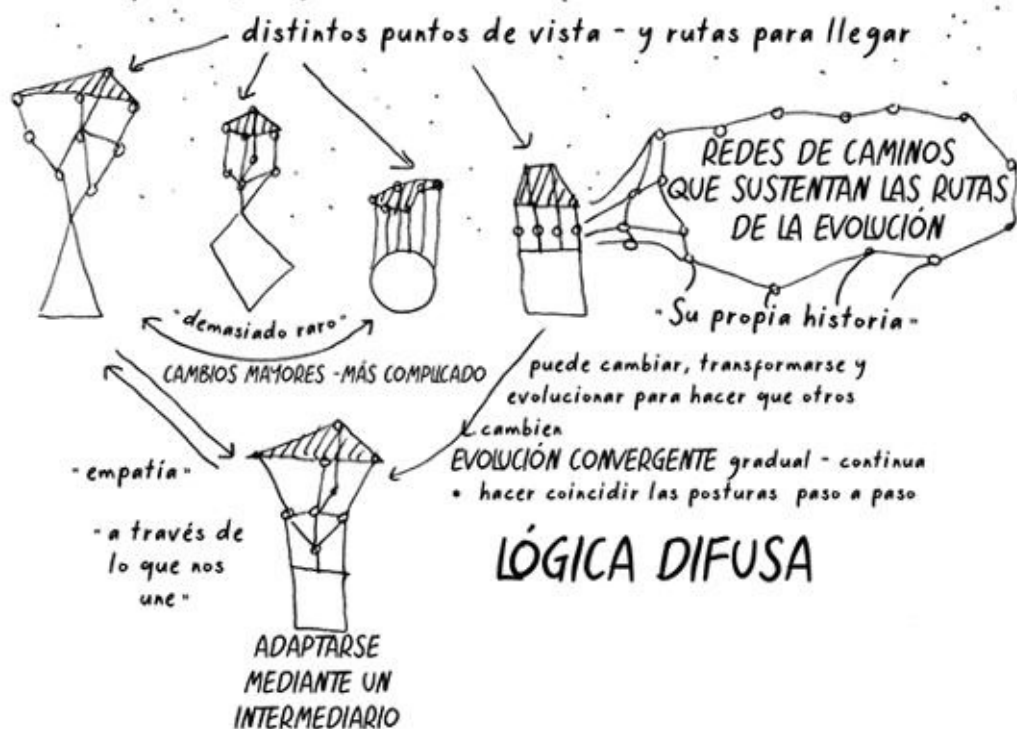 distintos puntos de vista - y rutas para llegar
REDES DE CAMINOS
QUE SUSTENTAN LAS RUTAS
DE LA EVOLUCIÓN
"Su propia historia"
"demasiado raro"
CAMBIOS MAYORES - MÁS COMPLICADO
puede cambiar, transformarse y
evolucionar para hacer que otros
cambien
EVOLUCIÓN CONVERGENTE gradual - continua
• hacer coincidir las posturas paso a paso
"empatía"
"a través de
lo que nos
une"
LÓGICA DIFUSA
ADAPTARSE
MEDIANTE UN
INTERMEDIARIO